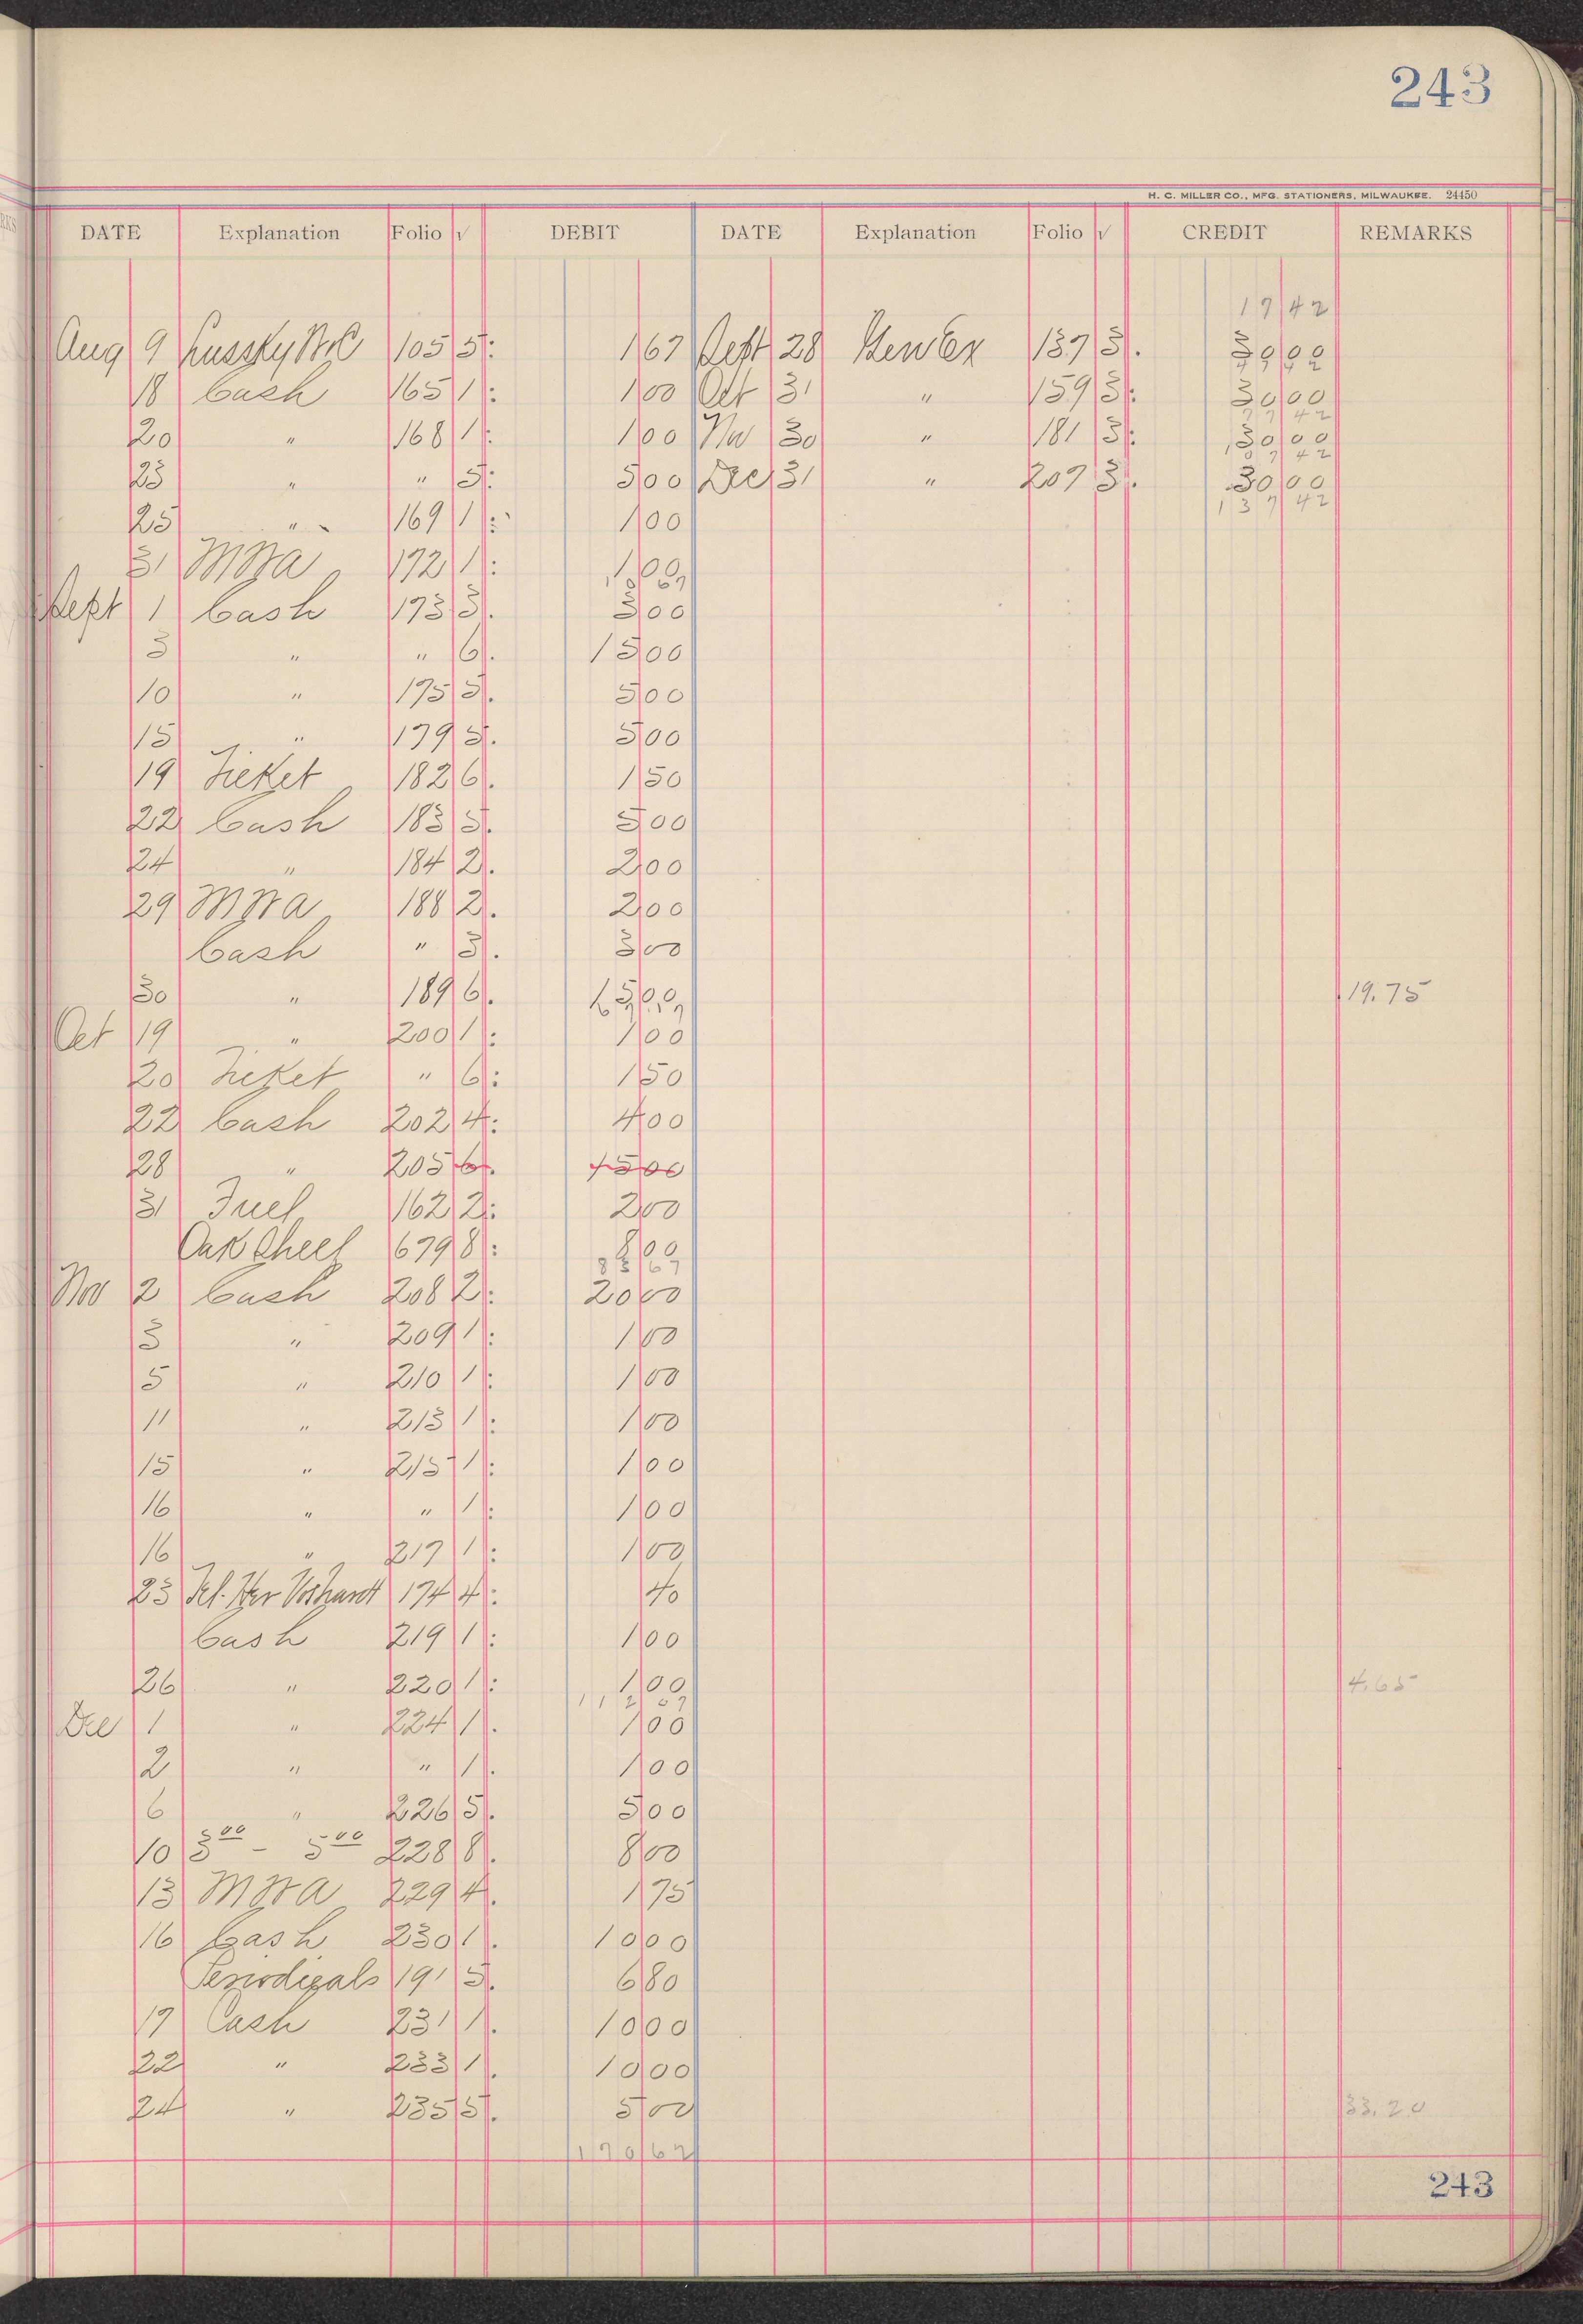 243
H. C. MILLER CO., MFG. STATIONERS, MILWAUKEE. 24450
DATE Explanation Folio √ DEBIT DATE Explanation Folio √ CREDIT REMARKS
17 42
Aug 9 105 5 1 67 Sept 28 Gen Ex 137 3 30 00
47 42
18 Cash 165 1 1 00 Oct 31 " 159 3 30 00
77 42
20 " 168 1 1 00 Nov 30 " 181 3 30 00
107 42
23 " " 5 5 00 Dec 31 " 207 3 30 00
137 42
25 " 169 1 1 00
31 172 1 1 00
Sept 1 Cash 173 3 3 00
3 " " 6 15 00
10 " 175 5 5 00
15 " 179 5 5 00
19 Ticket 182 6 1 50
22 Cash 183 5 5 00
24 " 184 2 2 00
29 188 2 2 00
Cash " 3 3 00
30 " 189 6 15 00 19.75
Oct 19 " 200 1 1 00
20 Ticket " 6 1 50
22 Cash 202 4 4 00
28 " 205 6 15 00
31 Fuel 162 2 2 00
679 8 8 00
Nov 2 Cash 208 2 20 00
3 " 209 1 1 00
5 " 210 1 1 00
11 " 213 1 1 00
15 " 215 1 1 00
16 " " 1 1 00
16 " 217 1 1 00
23 174 4 40
Cash 219 1 1 00
26 " 220 1 1 00 4.65
Dec 1 " 224 1 1 00
2 " " 1 1 00
6 " 226 5 5 00
10 3 00 - 5 00 228 8 8 00
13 229 4 1 75
16 Cash 230 1 10 00
Periodicals 191 5 6 80
17 Cash 231 1 10 00
22 " 233 1 10 00
24 " 235 5 5 00 33.20
170 67
243